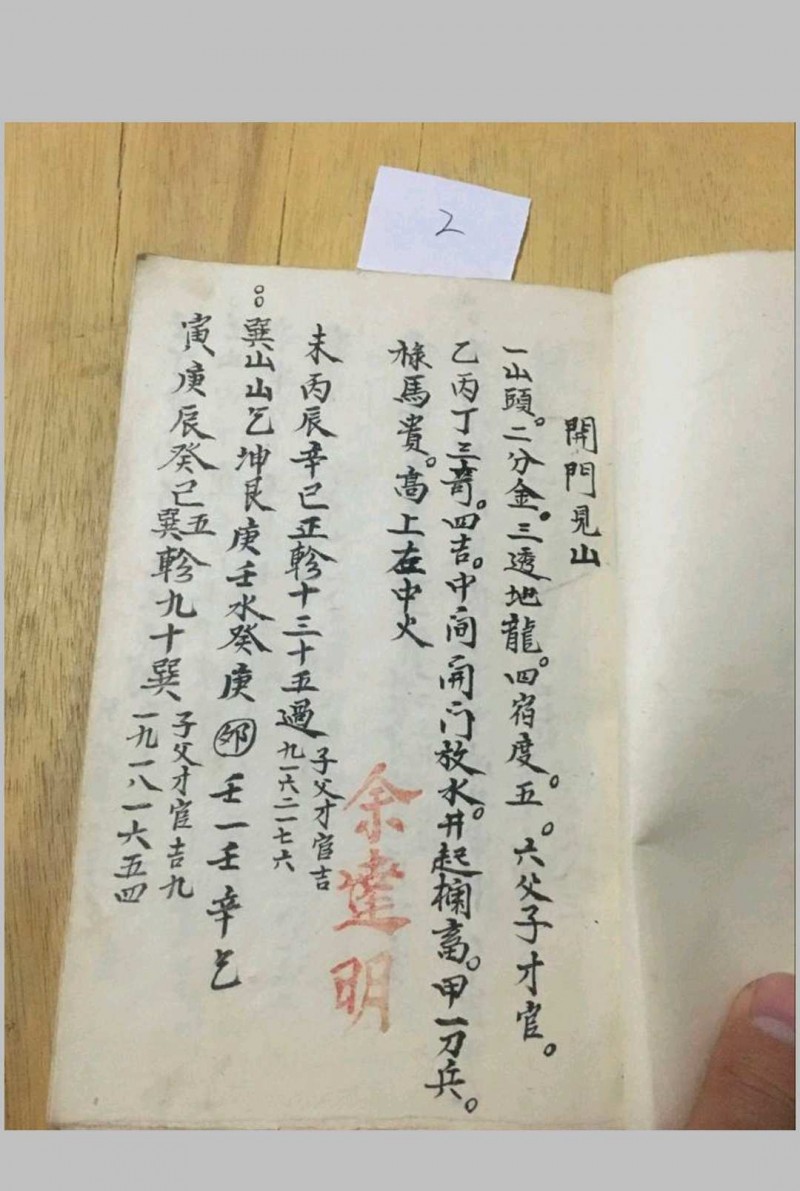 2
開門見山
一出頭。二分金。三透地龍。四宿度。五。六父子才官。
乙丙丁三竒。四吉。中间開门放水。井起欄畜。甲一刀兵。
祿馬貴。高上在中火
余達明
未丙辰辛巳正軫十三十五過
子父才官吉
九一六二一七六
巽山山乞坤艮庚壬水癸庚壬一壬辛乞
寅庚辰癸巳五巽軫九十巽
子父才官吉九
一九一八一六五四